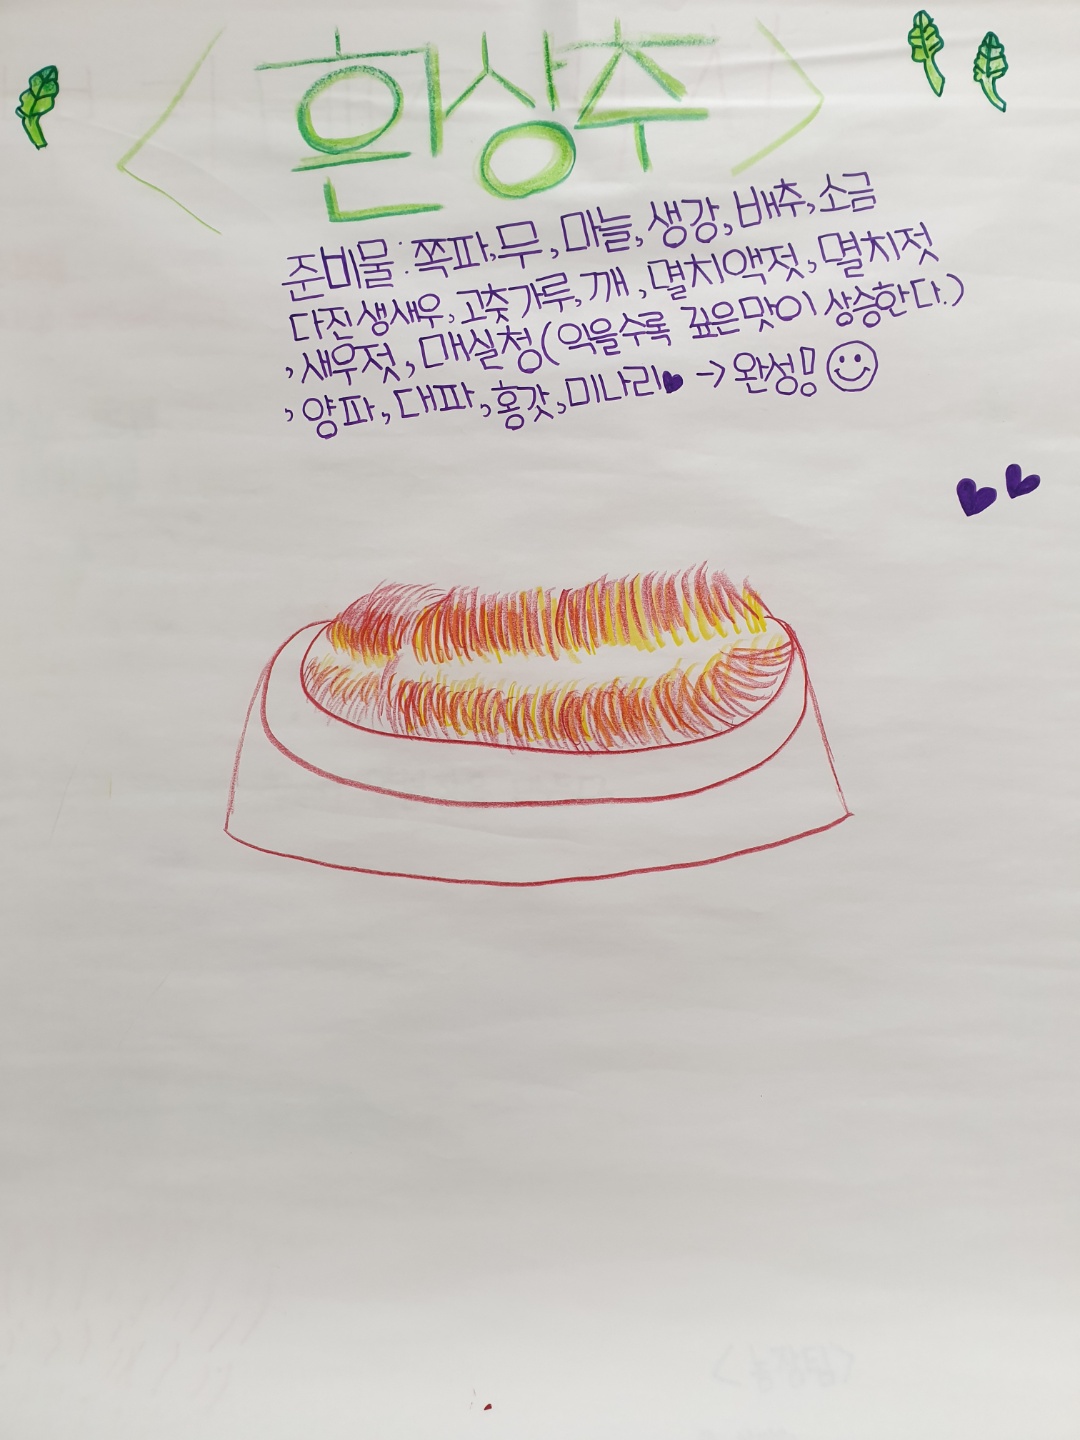 <환상추>
준비물: 쪽파, 무, 마늘, 생강, 배추, 소금
다진생새우, 고춧가루, 깨, 멸치액젓, 멸치젓
, 새우젓, 매실청(익을수록 깊은맛이 상승한다.)
, 양파, 대파, 홍갓, 미나리♥ → 완성!